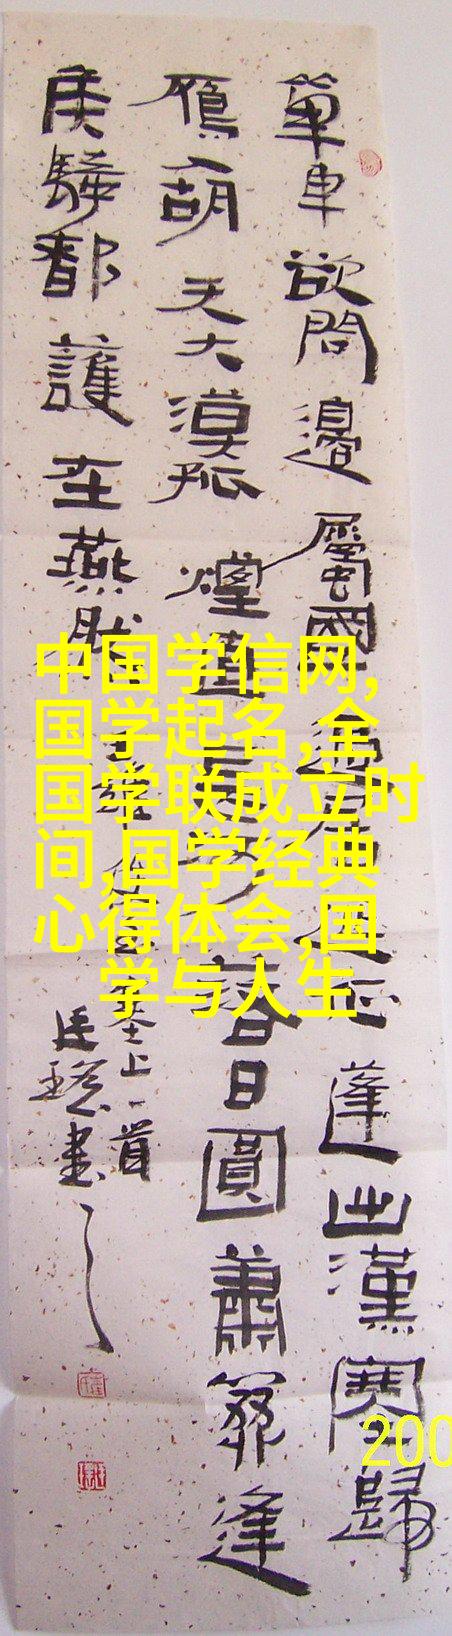 單車欲問邊屬國過居延征蓬出漢塞歸
雁入胡天大漠孤煙直長河落日圓蕭關逢
侯騎都護在燕然王維使至塞上一首
書
中国学信网,
国学起名,全
国学联成立时
间,国学经典
心得体会,国
学与人生
200